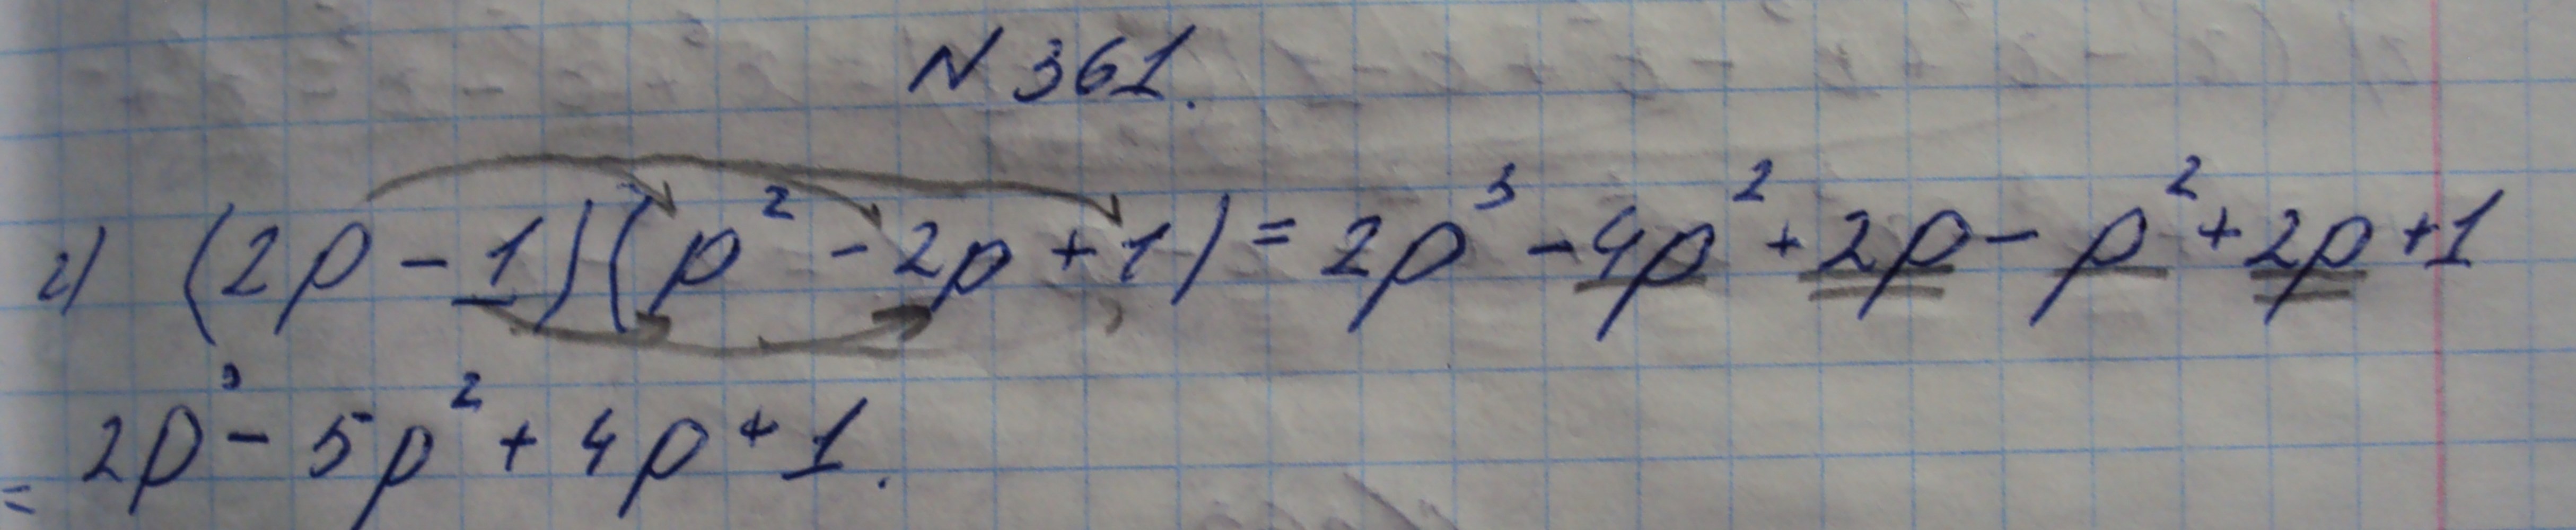 N 361.
г) (2p - 1)(p² - 2p + 1) = 2p³ - 4p² + 2p - p² + 2p + 1
= 2p³ - 5p² + 4p + 1.